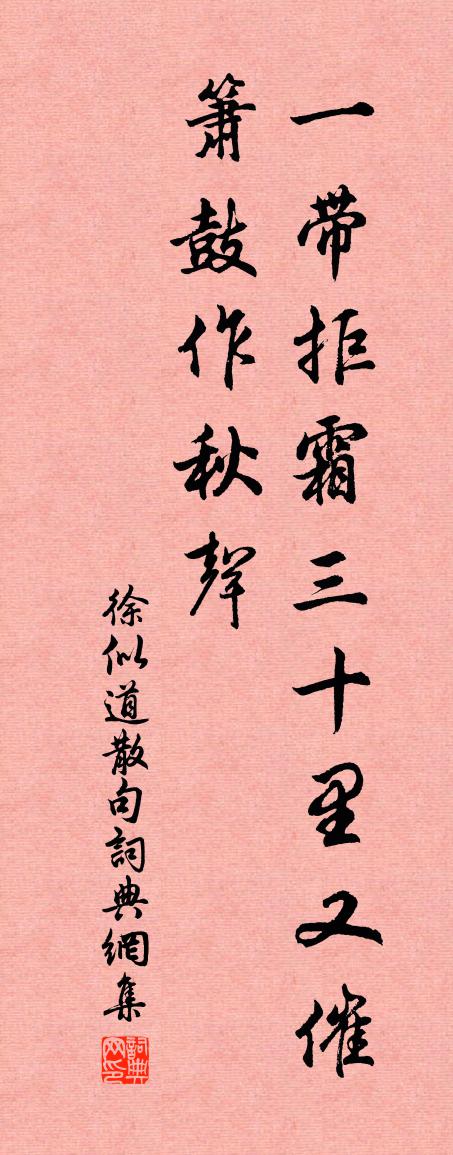 一帶拒霜三十里又催
簫鼓作秋聲
徐似道散句詞典網集
詞典網印